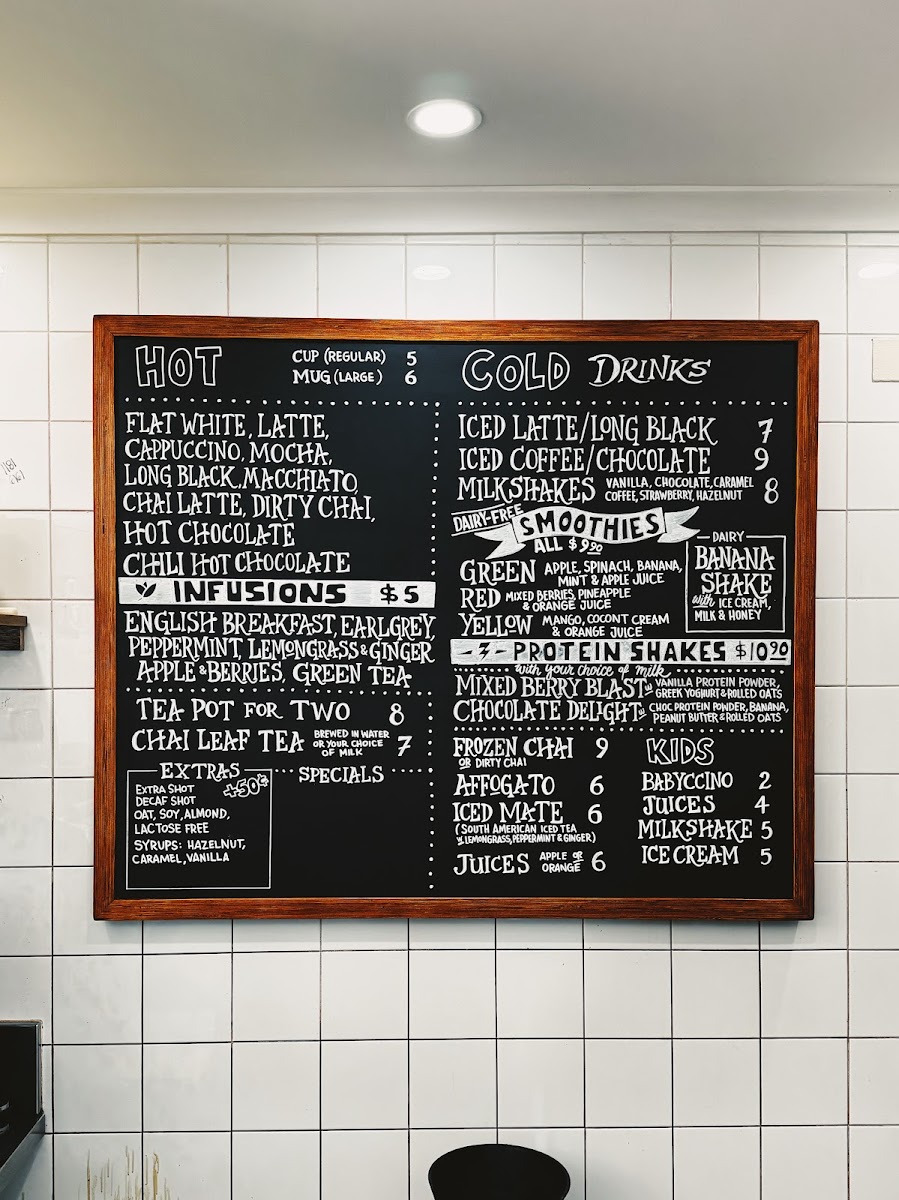 HOT
CUP (REGULAR) 5
MUG (LARGE) 6
FLAT WHITE, LATTE,
CAPPUCCINO, MOCHA,
LONG BLACK, MACCHIATO,
CHAI LATTE, DIRTY CHAI,
HOT CHOCOLATE
CHILI HOT CHOCOLATE
INFUSIONS $5
ENGLISH BREAKFAST, EARLGREY,
PEPPERMINT, LEMONGRASS & GINGER
APPLE & BERRIES, GREEN TEA
TEA POT FOR TWO 8
CHAI LEAF TEA BREWED IN WATER OR YOUR CHOICE OF MILK 7
EXTRAS
+50¢
EXTRA SHOT
DECAF SHOT
OAT, SOY, ALMOND,
LACTOSE FREE
SYRUPS: HAZELNUT,
CARAMEL, VANILLA
SPECIALS
COLD DRINKS
ICED LATTE/LONG BLACK 7
ICED COFFEE/CHOCOLATE 9
MILKSHAKES VANILLA, CHOCOLATE, CARAMEL COFFEE, STRAWBERRY, HAZELNUT 8
DAIRY-FREE
SMOOTHIES
ALL $9.90
GREEN APPLE, SPINACH, BANANA, MINT & APPLE JUICE
RED MIXED BERRIES, PINEAPPLE & ORANGE JUICE
YELLOW MANGO, COCONT CREAM & ORANGE JUICE
DAIRY
BANANA
SHAKE
with ICE CREAM,
MILK & HONEY
PROTEIN SHAKES $10.90
with your choice of milk
MIXED BERRY BLAST W VANILLA PROTEIN POWDER, GREEK YOGHURT & ROLLED OATS
CHOCOLATE DELIGHT W CHOC PROTEIN POWDER, BANANA, PEANUT BUTTER & ROLLED OATS
FROZEN CHAI 9
OR DIRTY CHAI
AFFOGATO 6
ICED MATE 6
(SOUTH AMERICAN ICED TEA
W LEMONGRASS, PEPPERMINT & GINGER)
JUICES APPLE OR ORANGE 6
KIDS
BABYCCINO 2
JUICES 4
MILKSHAKE 5
ICE CREAM 5